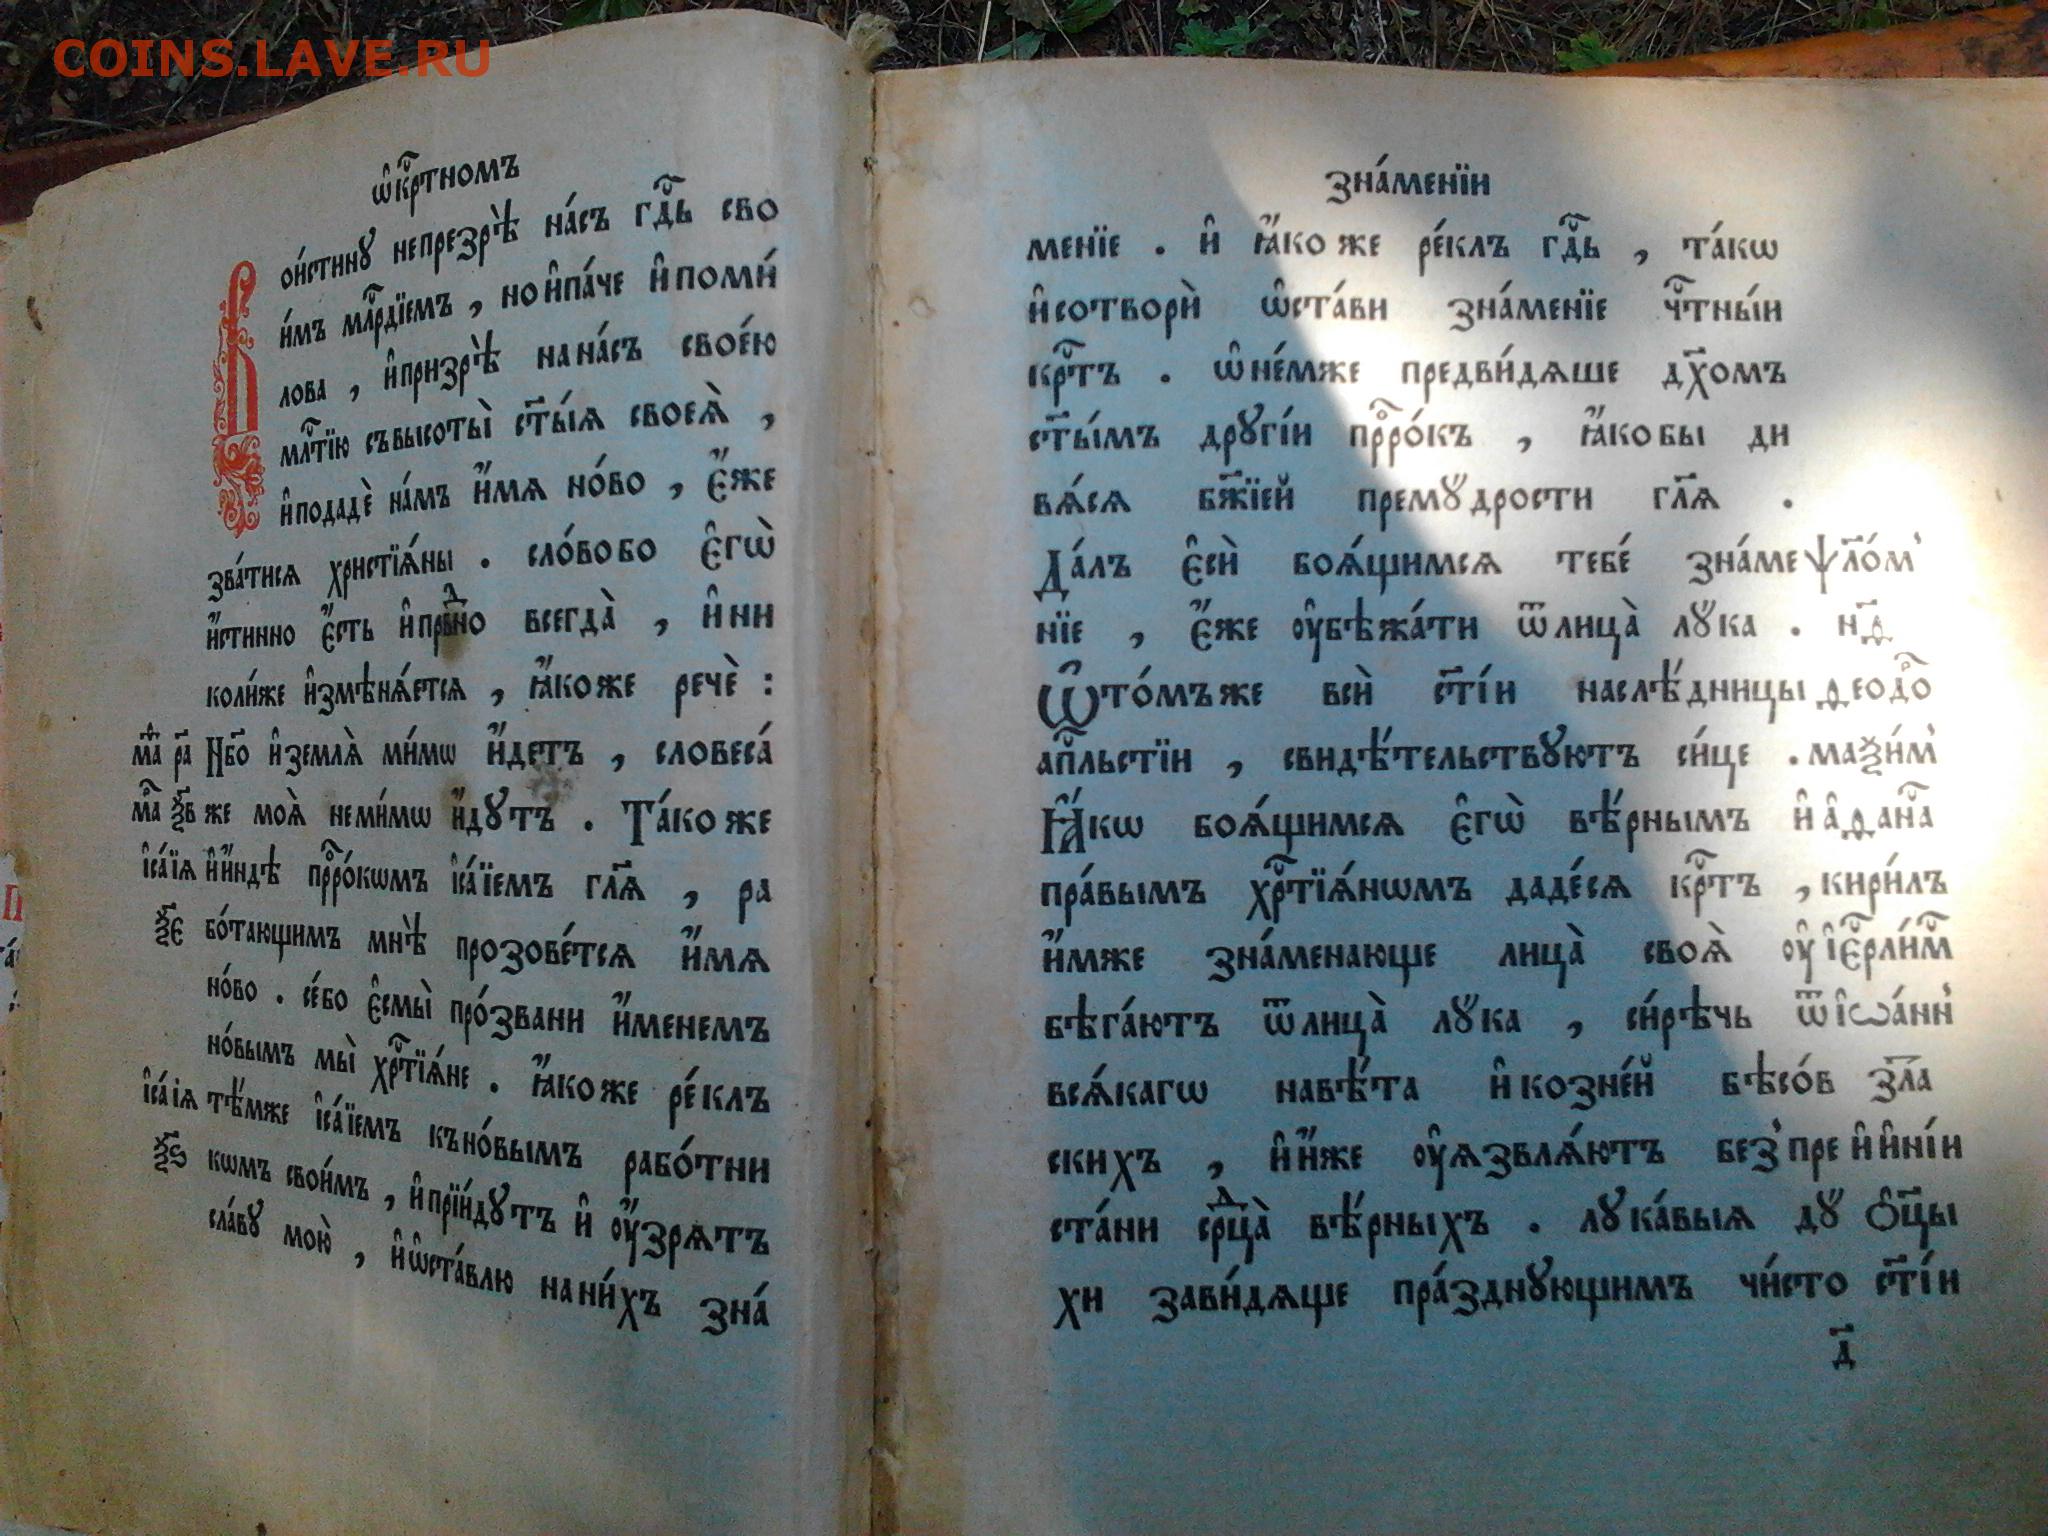 COINS.LAVE.RU
ѡ҆крⷭ҇тномъ
Вои́стинꙋ непрезрѣ̀ на́съ гдⷭ҇ь сво
и́мъ млⷭ҇рдїемъ , но и҆па́че и҆ поми́
лова , и҆призрѣ̀ на на́съ свое́ю
млⷭ҇тїю съвысоты̀ ст҃ы́ѧ своеѧ̀ ,
и҆подадѐ на́мъ и҆́мѧ но́во , є҆́же
зва́тисѧ христїѧ́ны . сло́во бо є҆гѡ̀
и҆́стинно є҆́сть и҆прⷭ҇но всегда̀ , и҆ ни
коли́же и҆змѣнѧ́етсѧ , ꙗ҆́коже речѐ :
Нб҃о и҆ землѧ̀ ми́мѡ и҆́детъ , словеса́
же моѧ̀ неми́мѡ и҆́дꙋтъ . Та́коже
и҆и҆́ндѣ прⷪ҇ро́кѡмъ і҆са́їемъ гл҃ѧ , ра
бо́тающимъ мнѣ̀ прозове́тсѧ и҆́мѧ
но́во . се́бо є҆смы̀ про́звани и҆́менемъ
но́вымъ мы̀ хрⷭ҇тїѧ́не . ꙗ҆́коже ре́клъ
тѣ́мже і҆са́їемъ къно́вымъ рабо́тни
кѡмъ свои́мъ , и҆прїи́дꙋтъ и҆ ᲂу҆́зрѧтъ
сла́вꙋ мою̀ , и҆ѡ҆ста́влю на ни́хъ зна́
і҆са́їѧ
ѯ҃є
і҆са́їѧ
ѯ҃ѕ
зна́менїи
менїе . и҆ ꙗ҆́коже ре́клъ гдⷭ҇ь , та́кѡ
и҆сотворѝ ѡ҆ста́ви зна́менїе чⷭ҇тны́и
крⷭ҇тъ . ѡ҆не́мже предви́дѧше дх҃омъ
ст҃ы́мъ дрꙋгі́и прⷪ҇ро́къ , ꙗ҆́кобы ди
вѧ́сѧ бж҃їей премꙋдрости гл҃ѧ .
Да́лъ є҆сѝ боѧ́щимсѧ тебе́ зна́ме
нїе , є҆́же ᲂу҆бѣжа́ти ѿлица̀ лꙋ́ка .
Ѿто́мъже всѝ ст҃і́и наслѣ́дницы
апⷭ҇льстїи , свидѣ́тельствꙋютъ си́це .
Ꙗ҆́кѡ боѧ́щимсѧ є҆гѡ̀ вѣ́рнымъ и҆
пра́вымъ хрⷭ҇тїѧ́нѡмъ даде́сѧ крⷭ҇тъ ,
и҆́мже зна́менающе лица̀ своѧ̀ ᲂу҆
бѣга́ютъ ѿлица̀ лꙋ́ка , си́рѣчь ѿ
всѧ́кагѡ навѣ́та и҆ козне́й бѣсо́в
скихъ , и҆и҆́же ᲂу҆ѧзвлѧ́ютъ без̾пре
ста́ни срⷣца̀ вѣ́рныхъ . лꙋка́выѧ дꙋ́
хи зави́дѧще пра́зднꙋющимъ чи́сто
ѱло́м̾
н҃ѳ
ѳеодо
маѯи́м̾
и҆ а҆ѳана
кири́лъ
і҆єрⷭ҇ли́м
і҆ѡа́нн̾
зла
и҆ и҆ні́и
ѻ҆ц҃ы
ст҃і́и
д҃